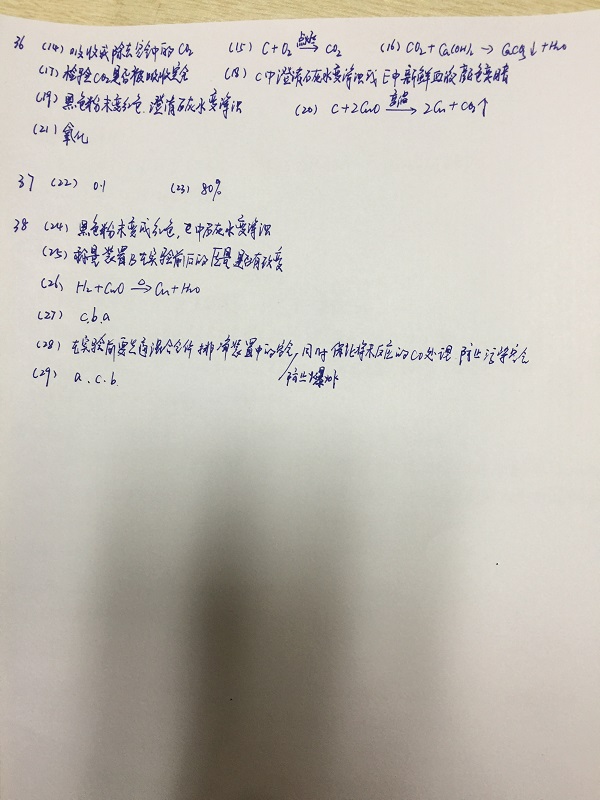 36 (14) 吸收或除去空气中的CO₂ (15) C+O₂ 点燃→ CO₂ (16) CO₂+Ca(OH)₂→CaCO₃↓+H₂O
(17) 检验CO₂是否被吸收完全 (18) C中澄清石灰水变浑浊或E中新鲜血液颜色变暗
(19) 黑色粉末变红色.澄清石灰水变浑浊 (20) C+2CuO 高温→ 2Cu+CO₂↑
(21) 氧化
37 (22) 0.1 (23) 80%
38 (24) 黑色粉末变成红色,石灰水变浑浊
(25) 称量装置B在实验前后的质量是否有改变
(26) H₂+CuO △→ Cu+H₂O
(27) c.b.a
(28) 在实验前要先通混合气体排净装置中的空气,同时 将未反应的CO处理 防止污染空气
防止爆炸
(29) a.c.b.